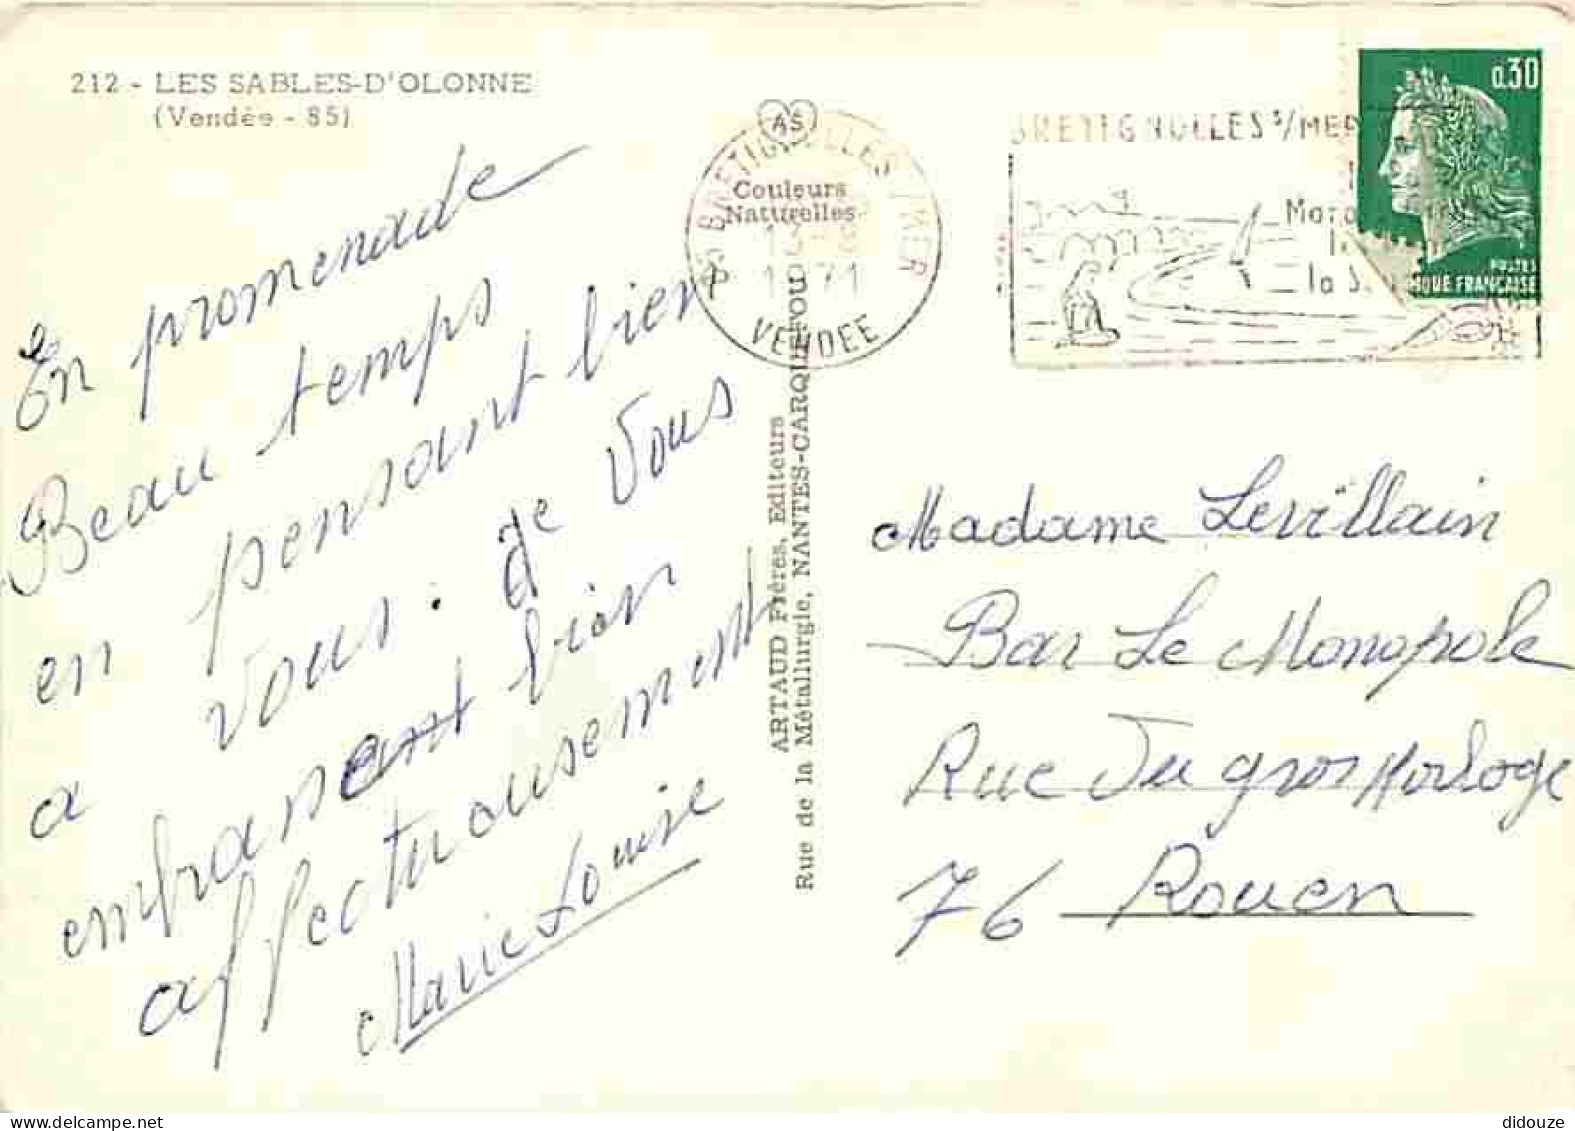 212 - LES SABLES-D'OLONNE
(Vendée - 85)
En promenade
Beau temps
en pensant bien
a vous. de vous
embrassant bien
affectuousement
Marie Louise
AS
Couleurs
Naturelles
85 BRETIGNOLLES S/MER
13-
1971
VENDEE
ARTAUD Frères, Editeurs
Rue de la Métallurgie, NANTES-CARQUEFOU
BRETIGNOLLES S/MER
la
0.30
POSTES
IQUE FRANÇAISE
Madame Levillain
Bar Le Monopole
Rue Du gros Horloge
76 Rouen
didouze